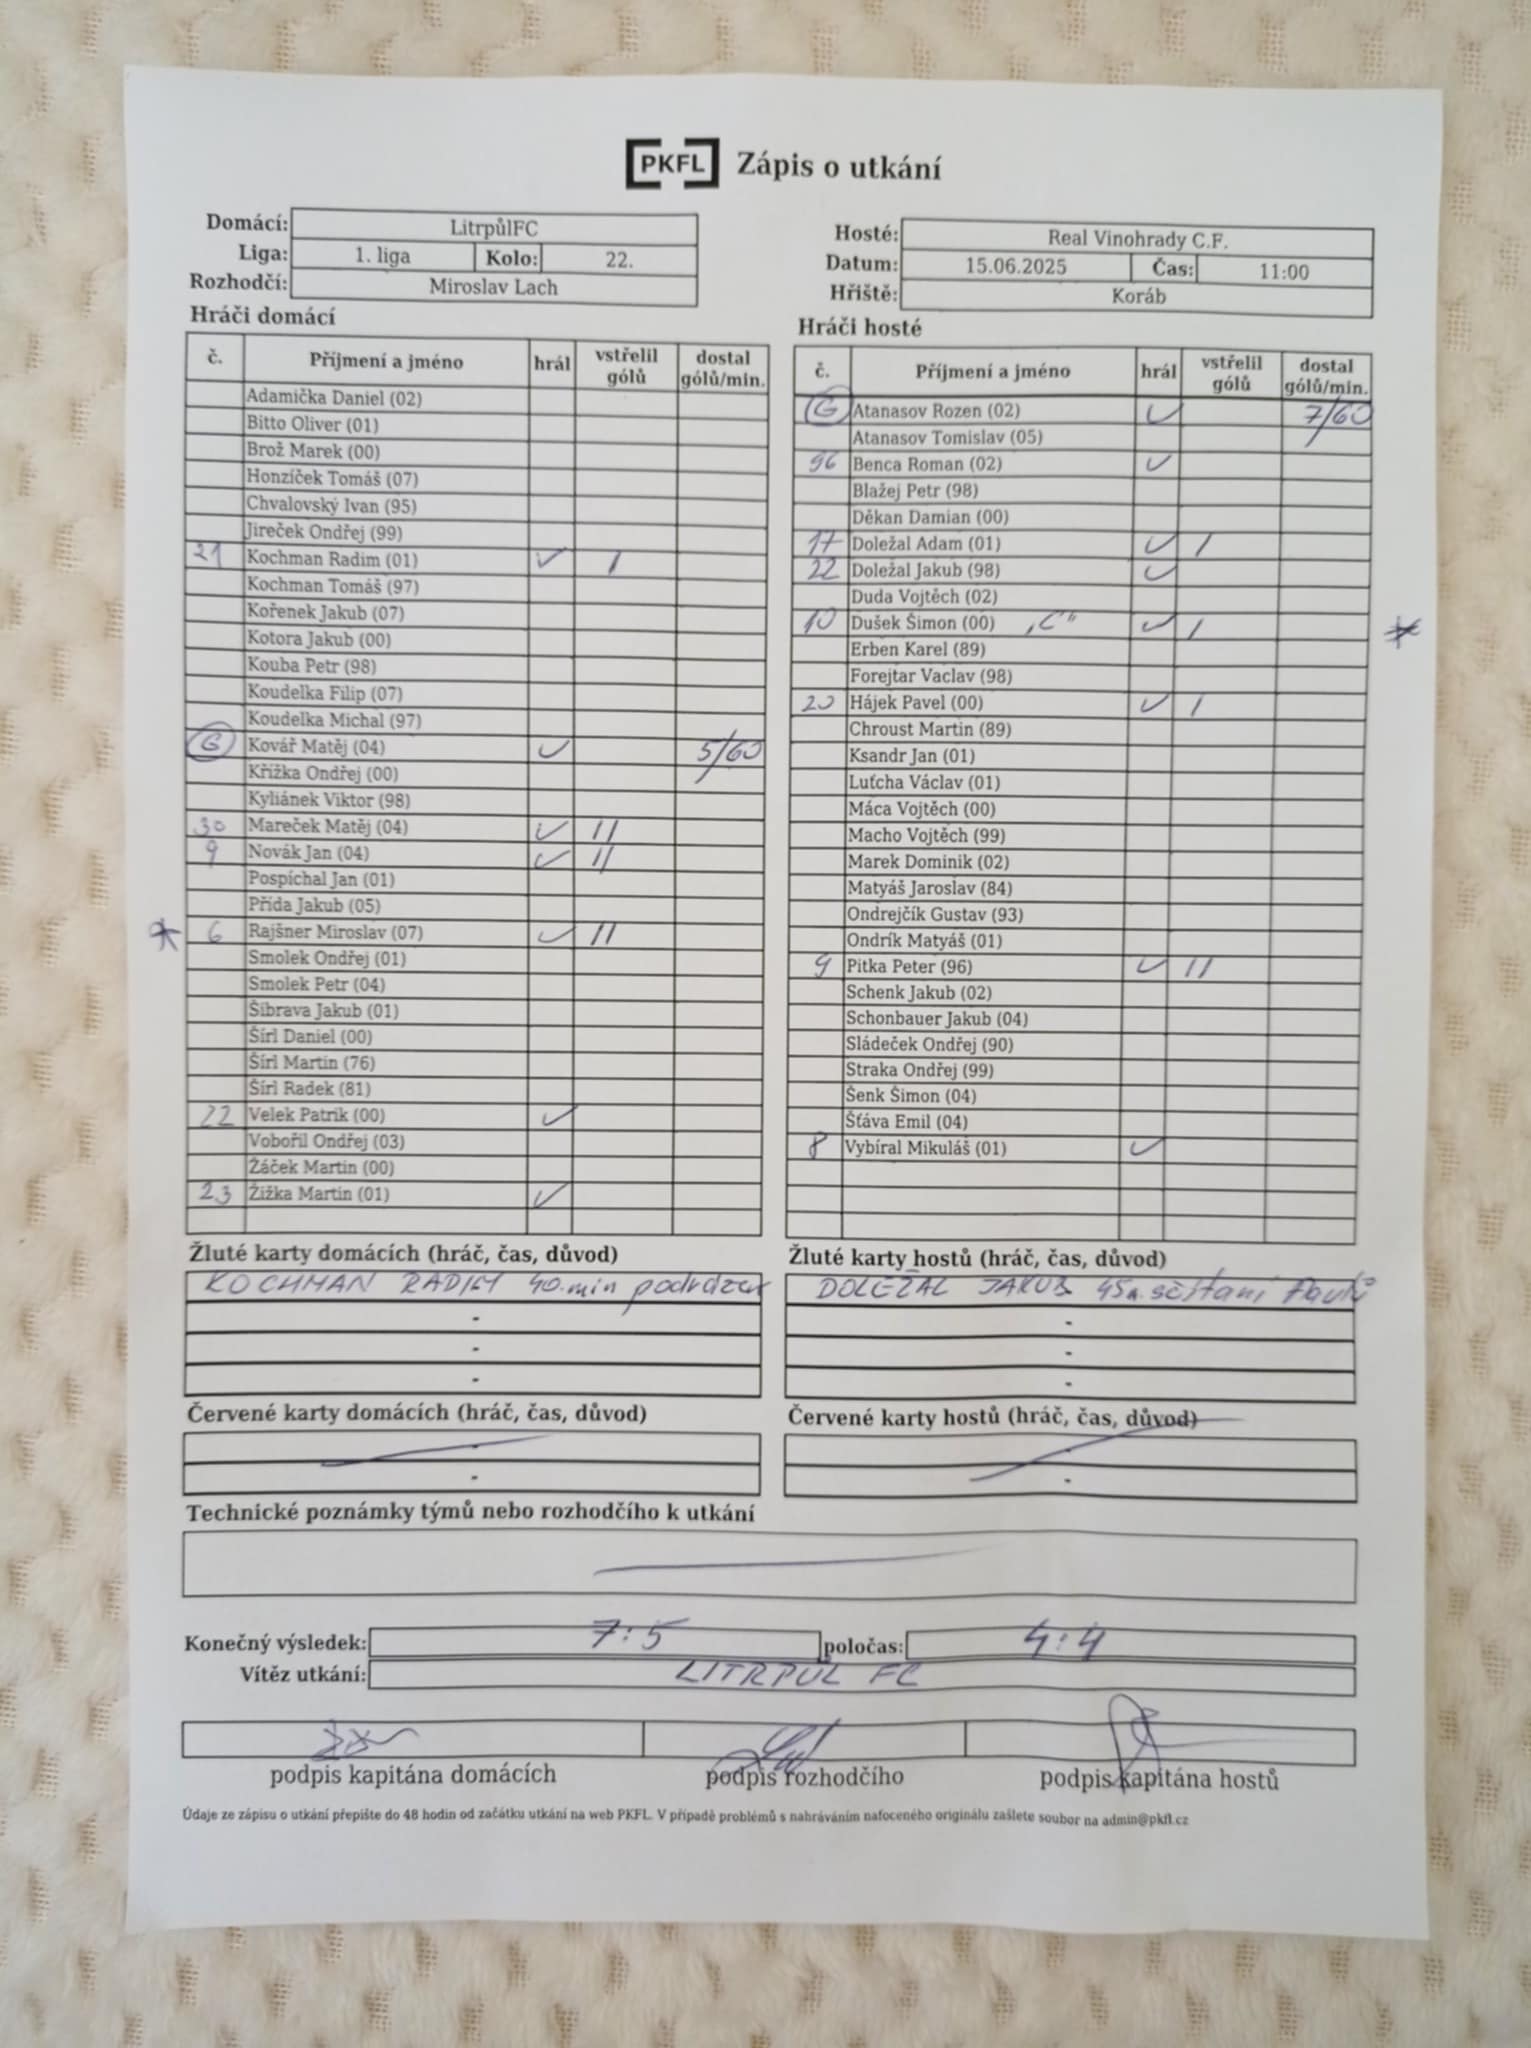 PKFL Zápis o utkání
Domácí: LitrpůlFC
Liga: 1. liga Kolo: 22.
Rozhodčí: Miroslav Lach
Hosté: Real Vinohrady C.F.
Datum: 15.06.2025 Čas: 11:00
Hřiště: Koráb
Hráči domácí
č. Příjmení a jméno hrál vstřelil gólů dostal gólů/min.
Adamička Daniel (02)
Bitto Oliver (01)
Brož Marek (00)
Honzíček Tomáš (07)
Chvalovský Ivan (95)
Jireček Ondřej (99)
21 Kochman Radim (01) ✓ I
Kochman Tomáš (97)
Kořenek Jakub (07)
Kotora Jakub (00)
Kouba Petr (98)
Koudelka Filip (07)
Koudelka Michal (97)
G Kovář Matěj (04) ✓ 5/60
Křížka Ondřej (00)
Kyliánek Viktor (98)
30 Mareček Matěj (04) ✓ II
9 Novák Jan (04) ✓ II
Pospíchal Jan (01)
Přída Jakub (05)
* 6 Rajšner Miroslav (07) ✓ II
Smolek Ondřej (01)
Smolek Petr (04)
Šibrava Jakub (01)
Šírl Daniel (00)
Šírl Martin (76)
Šírl Radek (81)
22 Velek Patrik (00) ✓
Vobořil Ondřej (03)
Žáček Martin (00)
23 Žižka Martin (01) ✓
Hráči hosté
č. Příjmení a jméno hrál vstřelil gólů dostal gólů/min.
G Atanasov Rozen (02) ✓ 7/60
Atanasov Tomislav (05)
96 Benca Roman (02) ✓
Blažej Petr (98)
Děkan Damian (00)
17 Doležal Adam (01) ✓ I
22 Doležal Jakub (98) ✓
Duda Vojtěch (02)
10 Dušek Šimon (00) „C" ✓ I *
Erben Karel (89)
Forejtar Vaclav (98)
20 Hájek Pavel (00) ✓ I
Chroust Martin (89)
Ksandr Jan (01)
Luťcha Václav (01)
Máca Vojtěch (00)
Macho Vojtěch (99)
Marek Dominik (02)
Matyáš Jaroslav (84)
Ondrejčík Gustav (93)
Ondrík Matyáš (01)
9 Pitka Peter (96) ✓ II
Schenk Jakub (02)
Schonbauer Jakub (04)
Sládeček Ondřej (90)
Straka Ondřej (99)
Šenk Šimon (04)
Šťáva Emil (04)
8 Vybíral Mikuláš (01) ✓
Žluté karty domácích (hráč, čas, důvod)
KOCHMAN RADIM 40.min podražení
-
-
-
Žluté karty hostů (hráč, čas, důvod)
DOLEŽAL JAKUB 45m. sčítání faulů
-
-
-
Červené karty domácích (hráč, čas, důvod)
-
-
Červené karty hostů (hráč, čas, důvod)
-
-
Technické poznámky týmů nebo rozhodčího k utkání
Konečný výsledek: 7:5 poločas: 4:4
Vítěz utkání: LITRPUL FC
podpis kapitána domácích podpis rozhodčího podpis kapitána hostů
Údaje ze zápisu o utkání přepište do 48 hodin od začátku utkání na web PKFL. V případě problémů s nahráváním nafoceného originálu zašlete soubor na admin@pkfl.cz